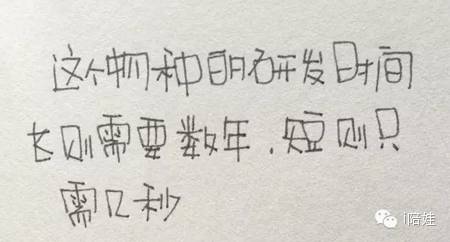 这个物种的研发时间
长则需要数年.短则只
需几秒
i陪娃